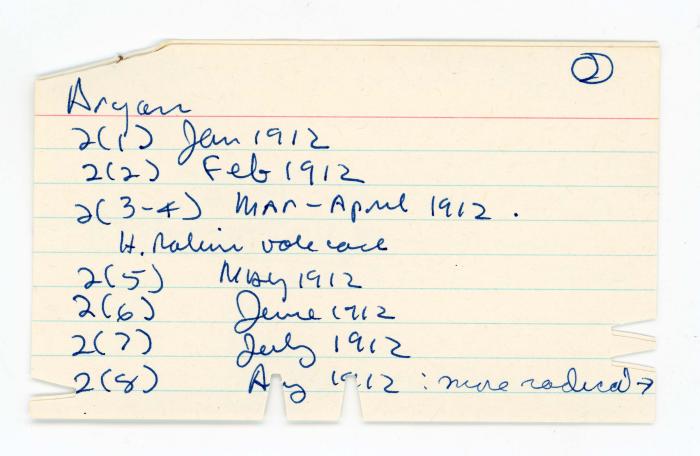 2
Aryan
2(1) Jan 1912
2(2) Feb 1912
2(3-4) Mar-April 1912.
H. Rahim
2(5) May 1912
2(6) June 1912
2(7) July 1912
2(8) Aug 1912 : more radical →